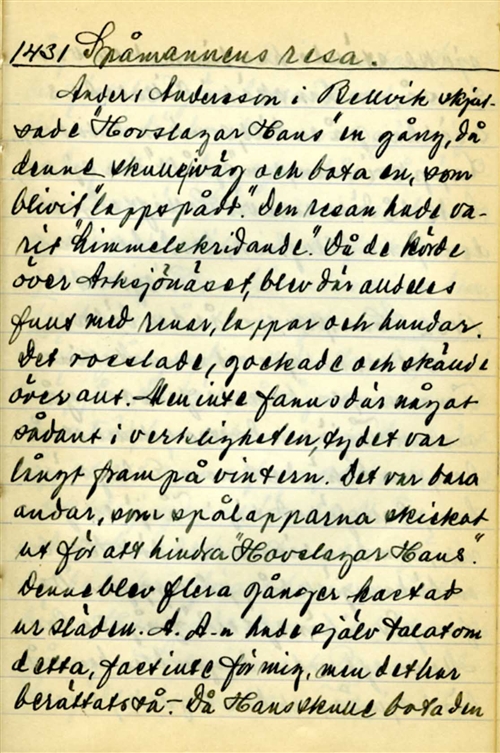 1431 Spåmannens resa.
Anders Andersson i Bellvik skjut-
sade "Hovslagar Hans" en gång, då
denne skulle iväg och bota en, som
blivit "lappspådd". Den resan hade va-
rit "himmelskridande". Då de körde
över Arksjönäset, blev där alldeles
fullt med renar, lappar och hundar.
Det rosslade, gockade och skände
överallt. Men inte fanns där något
sådant i verkligheten, ty det var
långt fram på vintern. Det var bara
andar, som spålapparna skickat
ut för att hindra "Hovslagar Hans".
Denne blev flera gånger kastad
ur släden. A. A-n hade själv talat om
detta, fast inte för mig, men det har
berättats så. – Då Hans skulle bota den